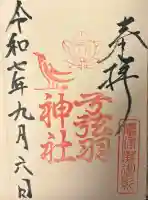 奉拝
弓弦羽
神社
令和七年九月六日